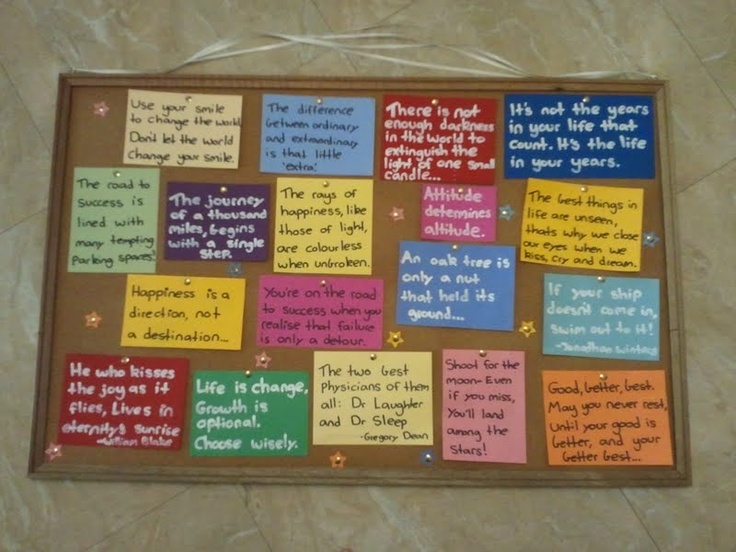 Use your smile
to change the world,
Don't let the world
Change your smile.
The difference
between ordinary
and extraordinary
is that little
'extra'.
There is not
enough darkness
in the world to
extinguish the
light of one small
candle...
It's not the years
in your life that
count. It's the life
in your years.
The road to
success is
lined with
many tempting
parking spaces!
The journey
of a thousand
miles, begins
with a single
step.
The rays of
happiness, like
those of light,
are colourless
when unbroken.
Attitude
determines
altitude.
The best things in
life are unseen,
thats why we close
our eyes when we
kiss, cry and dream.
Happiness is a
direction, not
a destination...
You're on the road
to success when you
realise that failure
is only a detour.
An oak tree is
only a nut
that held its
ground...
If your ship
doesn't come in,
swim out to it!
-Jonathan Winters
He who kisses
the joy as it
flies, Lives in
eternity's sunrise
-William Blake
Life is change,
Growth is
optional.
Choose wisely.
The two best
Physicians of them
all: Dr Laughter
and Dr Sleep
-Gregory Dean
Shoot for the
moon- Even
if you miss,
You'll land
among the
Stars!
Good, better, best.
May you never rest,
Until your good is
better, and your
better best...